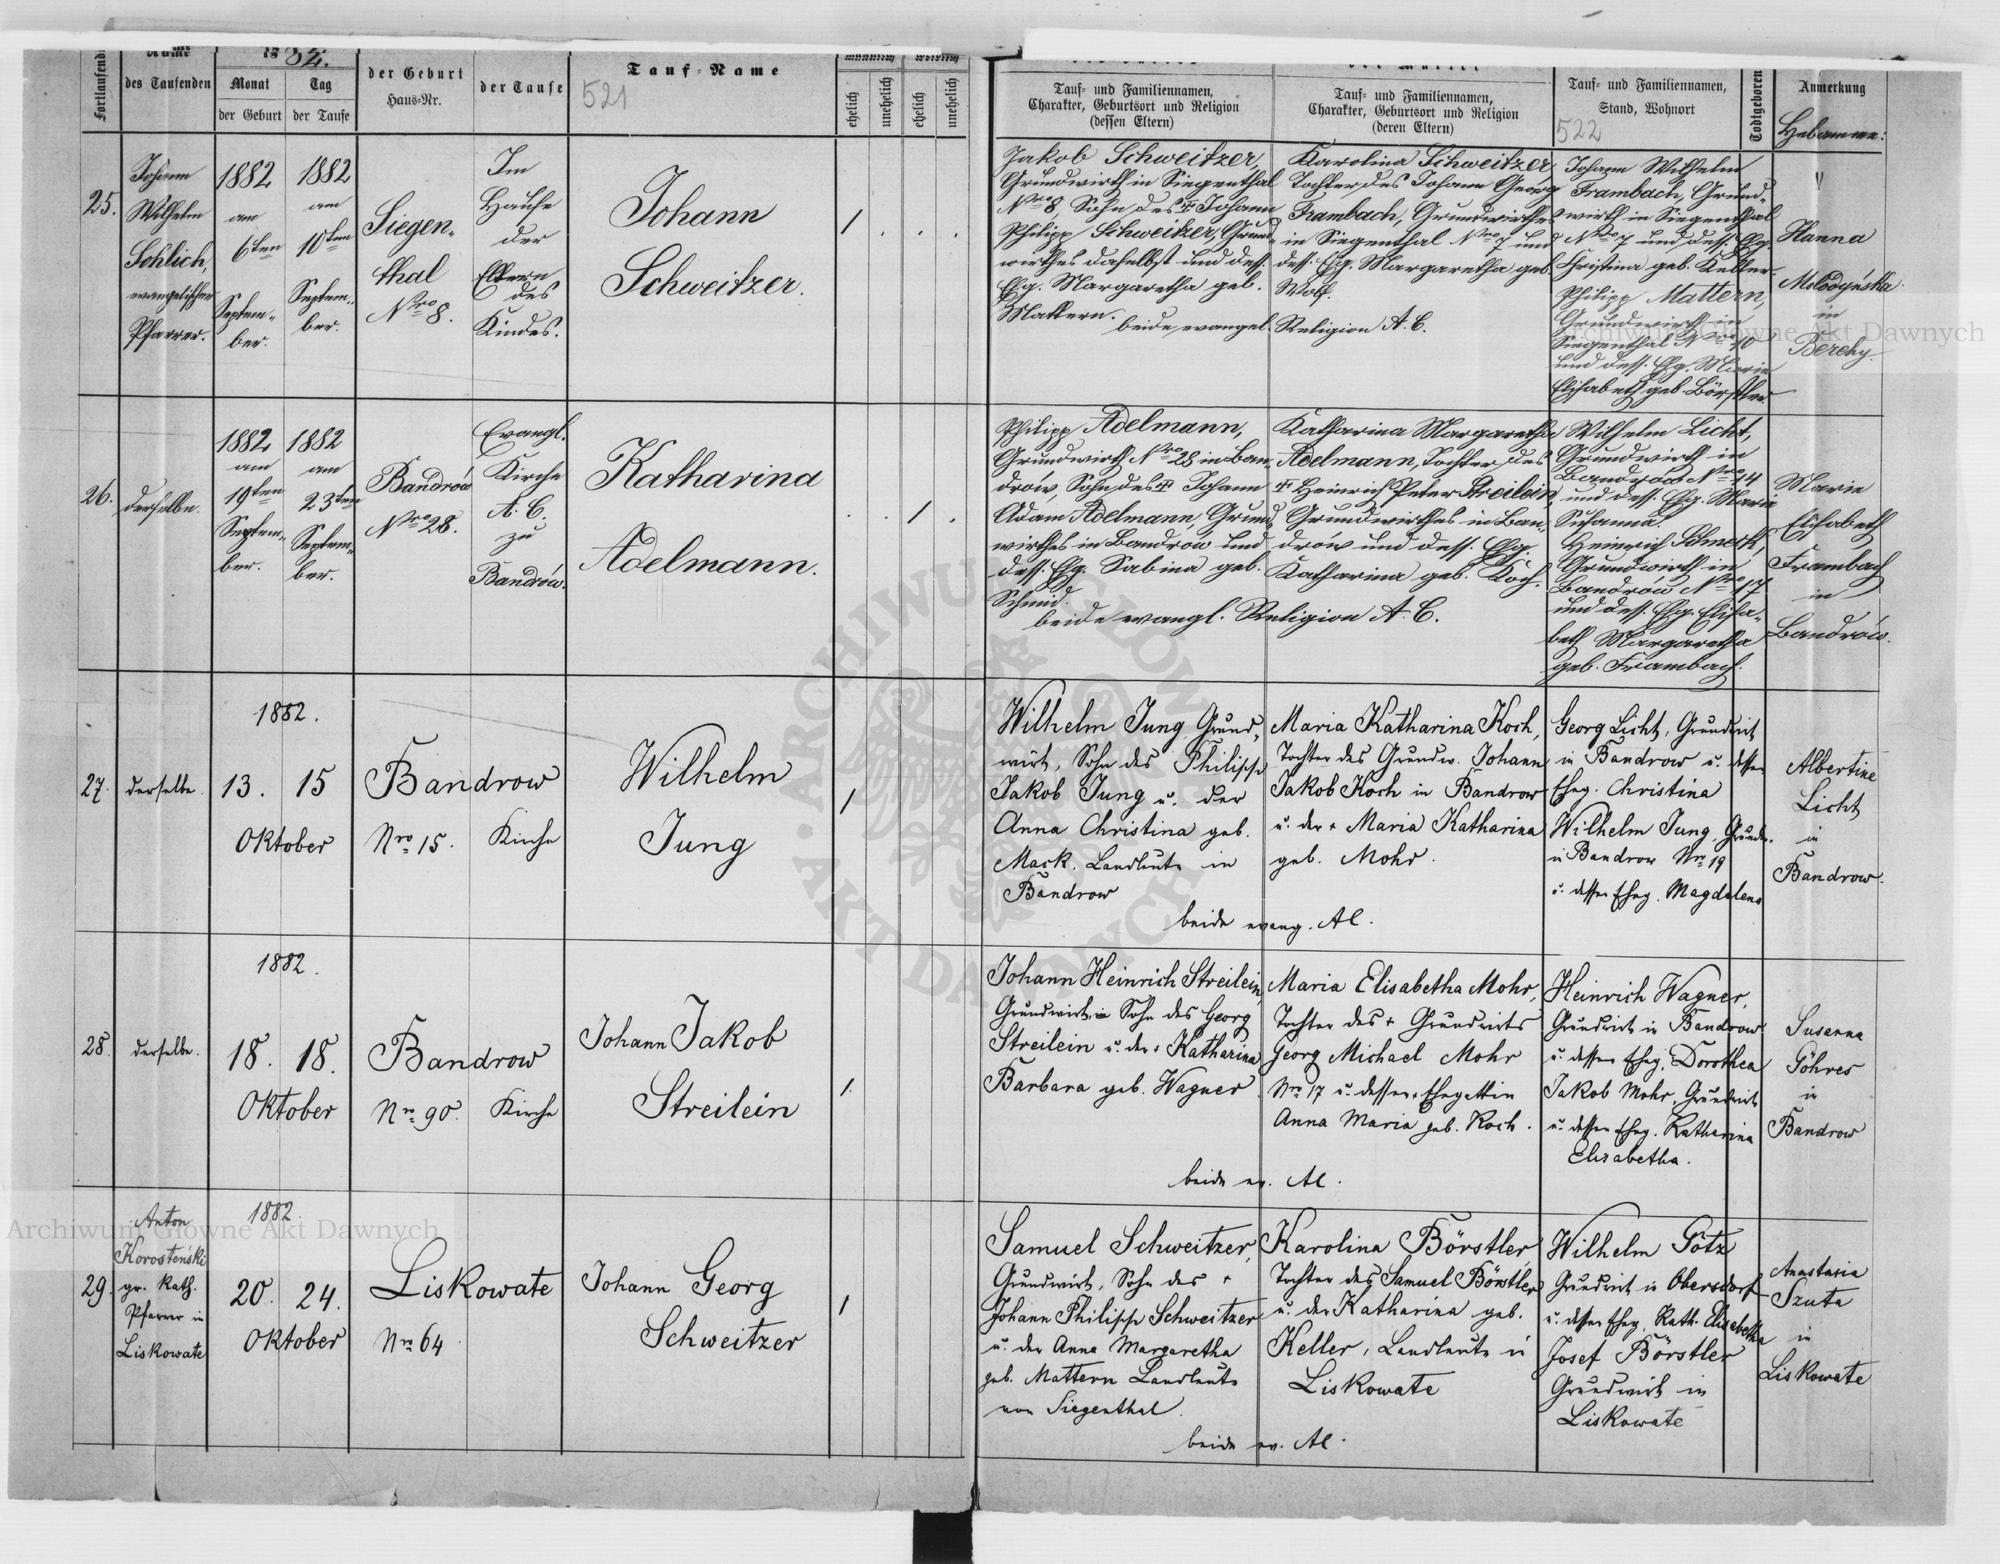 Fortlaufend
Name
des Taufenden
1882.
Monat
Tag
der Geburt
der Taufe
der Geburt
Haus-Nr.
der Taufe
Tauf-Name
521
männlich
weiblich
ehelich
unehelich
ehelich
unehelich
Tauf- und Familiennamen,
Charakter, Geburtsort und Religion
(dessen Eltern)
der Mutter
Tauf- und Familiennamen,
Charakter, Geburtsort und Religion
(deren Eltern)
Tauf- und Familiennamen,
Stand, Wohnort
522
Todtgeboren
Anmerkung
Hebamme:
25.
Johann
Wilhelm
Schlich,
evangelischer
Pfarrer.
1882
am
6ten
Septem-
ber.
1882
am
10ten
Septem-
ber.
Siegen-
thal
Nro 8.
Im
Hause
der
Eltern
des
Kindes.
Johann
Schweitzer.
1
Jakob Schweitzer,
Grundwirth in Siegenthal
Nro 8, Sohn des ✝ Johann
Philipp Schweitzer, Grund-
wirthes daselbst und dess.
Ehg. Margaretha geb.
Mattern.
Karolina Schweitzer,
Tochter des Johann Georg
Frambach, Grundwirthes
in Siegenthal Nro 7 und
dess. Ehg. Margaretha geb.
Wolf.
beide evangel. Religion A. C.
Johann Wilhelm
Frambach, Grund-
wirth in Siegenthal
Nro 7 und dess. Ehg.
Christina geb. Keller.
Philipp Mattern,
Grundwirth in
Siegenthal Nro 10
und dess. Ehg. Marie
Elisabeth geb. Börstler
Hanna
Molodyńska
in
Berehy.
26.
derselbe.
1882
am
19ten
Septem-
ber.
1882
am
23ten
Septem-
ber.
Bandrów
Nro 28.
Evangl.
Kirche
A. C.
zu
Bandrów.
Katharina
Adelmann.
1
Philipp Adelmann,
Grundwirth Nro 28 in Ban-
drów, Sohn des ✝ Johann
Adam Adelmann, Grund-
wirthes in Bandrów und
dess. Ehg. Sabina geb.
Schmid.
Katharina Margaretha
Adelmann, Tochter des
✝ Heinrich Peter Streilein,
Grundwirthes in Ban-
drów und dess. Ehg.
Katharina geb. Koch.
beide evangl. Religion A. C.
Wilhelm Licht,
Grundwirth in
Bandrów Nro 14
und dess. Ehg. Marie
Susanna.
Heinrich
Grundwirth in
Bandrów Nro 17
und dess. Ehg. Elisa-
beth Margaretha
geb. Frambach.
Marie
Elisabeth
Frambach
in
Bandrów.
27.
derselbe.
1882.
13. 15
Oktober
Bandrow
Nro 15.
Kirche
Wilhelm
Jung
1
Wilhelm Jung Grund-
wirt, Sohn des Philipp
Jakob Jung u. der
Anna Christina geb.
Mack. Landleute in
Bandrow
Maria Katharina Koch,
Tochter des Grundw. Johann
Jakob Koch in Bandrow
u. der + Maria Katharina
geb. Mohr.
beide evang. AC.
Georg Licht, Grundwirt
in Bandrow u. dessen
Eheg. Christina
Wilhelm Jung, Grundw.
in Bandrow Nro 19
u. dessen Eheg. Magdalena
Albertine
Licht
in
Bandrow.
28.
derselbe.
1882.
18. 18.
Oktober
Bandrow
Nro 90.
Kirche
Johann Jakob
Streilein
1.
Johann Heinrich Streilein,
Grundwirt, Sohn des Georg
Streilein u. der + Katharina
Barbara geb. Wagner.
Maria Elisabetha Mohr,
Tochter des + Grundwirts
Georg Michael Mohr
Nro 17 u. dessen Ehegattin
Anna Maria geb. Koch.
beide ev. AC.
Heinrich Wagner,
Grundwirt in Bandrow
u. dessen Eheg. Dorothea
Jakob Mohr, Grundwirt
u. dessen Eheg. Katharina
Elisabetha.
Susanna
Göhres
in
Bandrow
29.
Anton
Korosteński
gr. kath.
Pfarrer in
Liskowate
1882
20. 24.
Oktober
Liskowate
Nro 64
Johann Georg
Schweitzer
1
Samuel Schweitzer,
Grundwirt, Sohn des +
Johann Philipp Schweitzer
u. der Anna Margaretha
geb. Mattern Landleute
von Siegenthal.
Karolina Börstler,
Tochter des Samuel Börstler
u. der Katharina geb.
Keller, Landleute in
Liskowate
beide ev. AC.
Wilhelm Götz
Grundwirt in Obersdorf
u. dessen Eheg. Kath. Elisabetha
Josef Börstler
Grundwirt in
Liskowate
Anastasia
Szuta
in
Liskowate
Archiwum Główne Akt Dawnych
Archiwum Główne Akt Dawnych
ARCHIWUM GŁÓWNE
AKT DAWNYCH